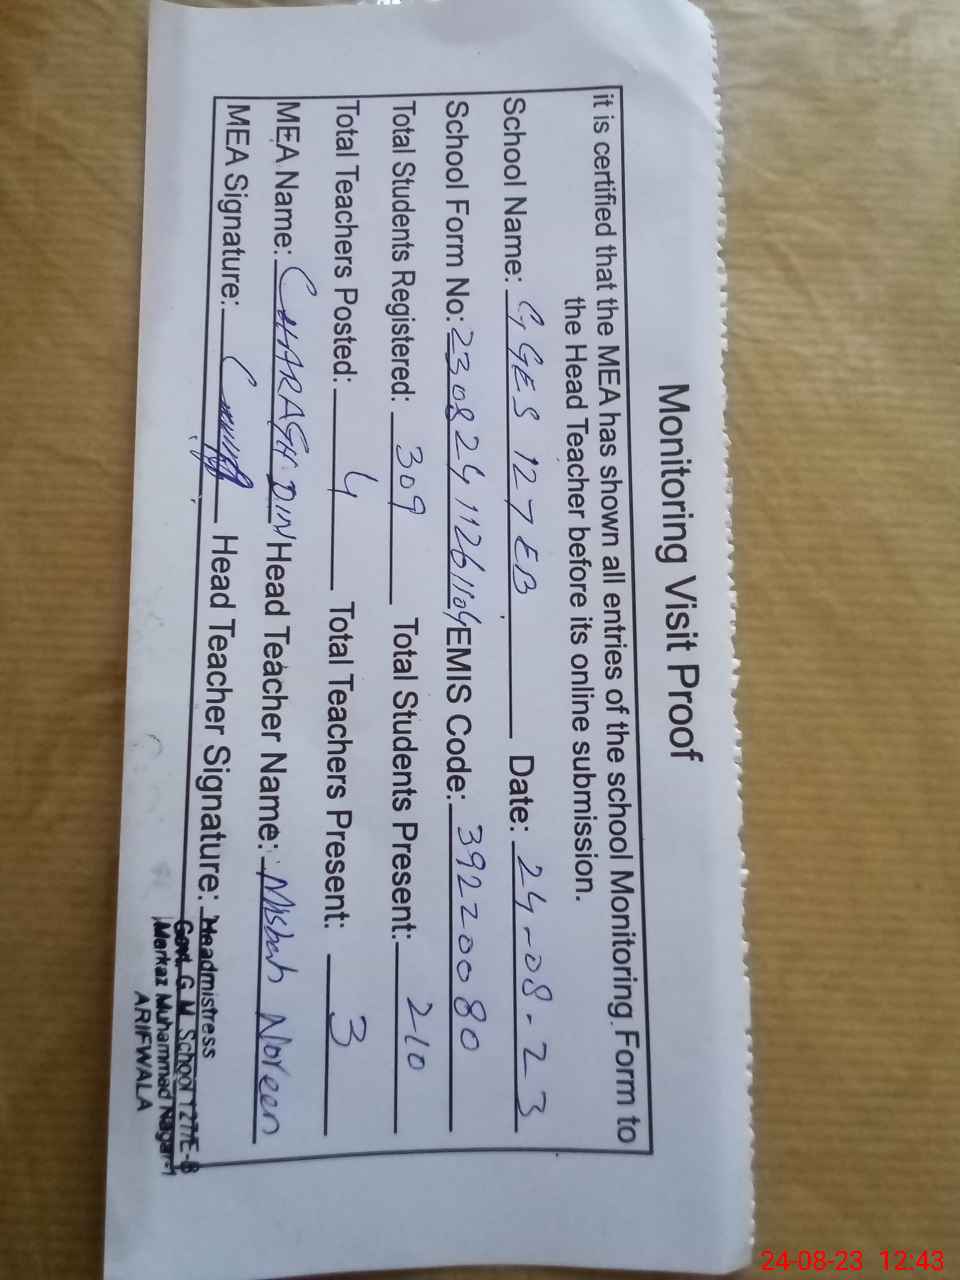 Monitoring Visit Proof
it is certified that the MEA has shown all entries of the school Monitoring Form to
the Head Teacher before its online submission.
School Name: GGES 127 EB Date: 24-08-23
School Form No: 23082411261104 EMIS Code: 39220080
Total Students Registered: 309 Total Students Present: 210
Total Teachers Posted: 4 Total Teachers Present: 3
MEA Name: CHARAGH DIN Head Teacher Name: Misbah Noreen
MEA Signature: Head Teacher Signature: Headmistress
Govt. G M School 127/E-B
Markaz Muhammad Nagar-1
ARIFWALA
24-08-23 12:43